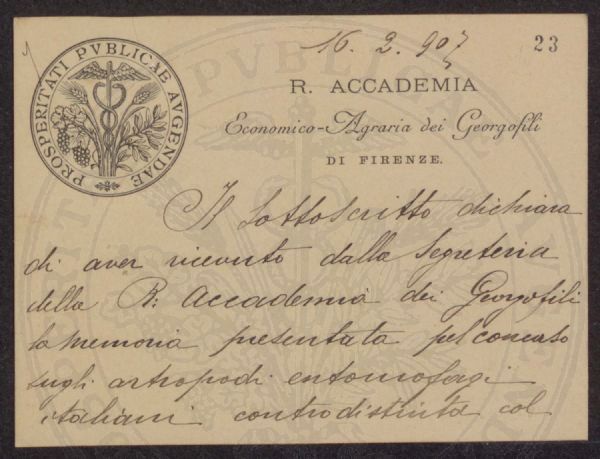 16. 2. 907
23
PROSPERITATI PVBLICAE AVGENDAE
R. ACCADEMIA
Economico-Agraria dei Georgofili
DI FIRENZE.
Il sottoscritto dichiara
di aver ricevuto dalla Segreteria
della R: Accademia dei Georgofili
la memoria presentata pel concorso
sugli artropodi entomofagi
italiani controdistinta col